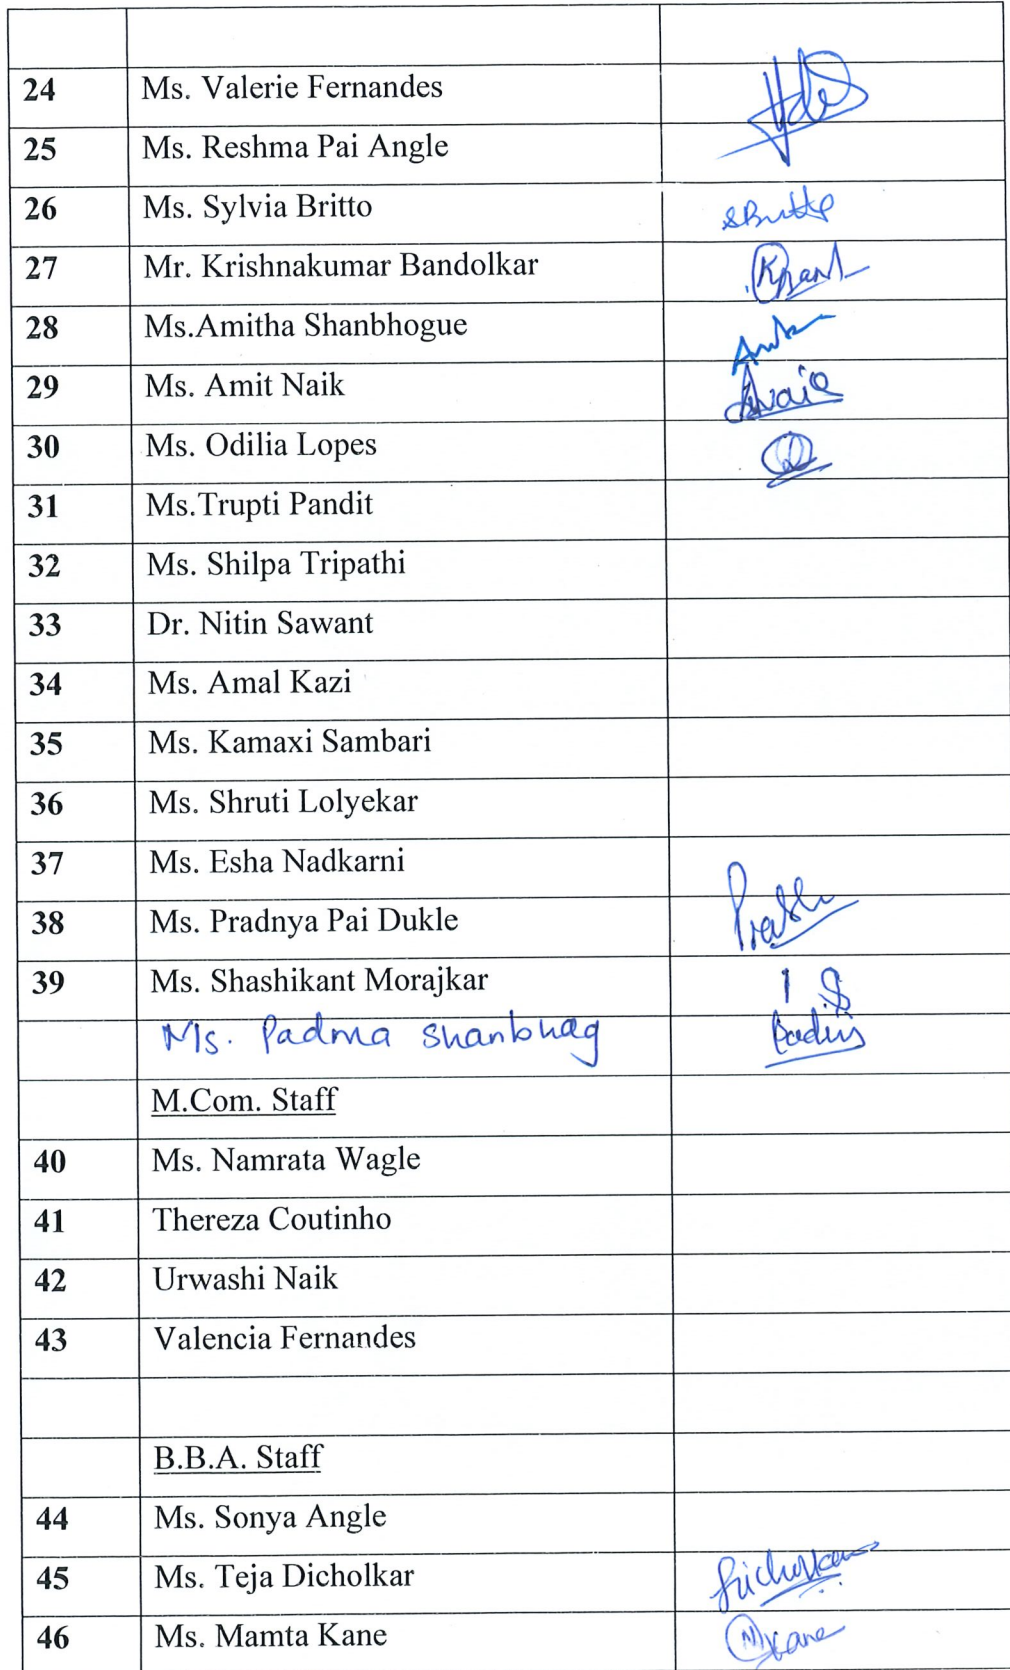 24 Ms. Valerie Fernandes
25 Ms. Reshma Pai Angle
26 Ms. Sylvia Britto SBritto
27 Mr. Krishnakumar Bandolkar
28 Ms.Amitha Shanbhogue
29 Ms. Amit Naik
30 Ms. Odilia Lopes
31 Ms.Trupti Pandit
32 Ms. Shilpa Tripathi
33 Dr. Nitin Sawant
34 Ms. Amal Kazi
35 Ms. Kamaxi Sambari
36 Ms. Shruti Lolyekar
37 Ms. Esha Nadkarni
38 Ms. Pradnya Pai Dukle
39 Ms. Shashikant Morajkar
Ms. Padma Shanbhag
M.Com. Staff
40 Ms. Namrata Wagle
41 Thereza Coutinho
42 Urwashi Naik
43 Valencia Fernandes
B.B.A. Staff
44 Ms. Sonya Angle
45 Ms. Teja Dicholkar
46 Ms. Mamta Kane MKane